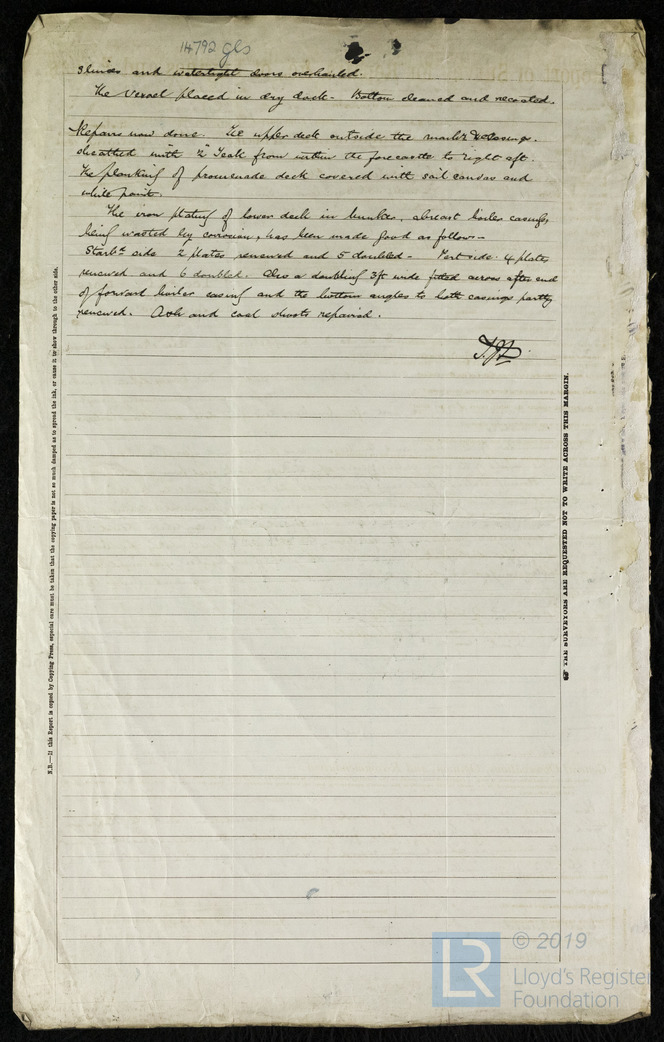 14792 gls
Sluices and watertight doors overhauled.
The Vessel placed in dry dock - Bottom cleaned and recoated.
Repairs now done. The upper deck outside the casings.
sheathed with 2" Teak from within the forecastle to right aft.
The planking of promenade deck covered with sail canvas and
white paint.
The iron plating of lower deck in bunker, abreast boiler casings,
being wasted by corrosion, has been made good as follows -
Starbd side 2 plates renewed and 5 doubled - Port side. 4 plates
renewed and 6 doubled. Also a doubling 3ft wide fitted across after end
of forward boiler casing and the bottom angles to both casings partly
renewed. Ash and coal shoots repaired.
N.B.—If this Report is copied by Copying Press, especial care must be taken that the copying paper is not so much damped as to spread the ink, or cause it to show through to the other side.
THE SURVEYORS ARE REQUESTED NOT TO WRITE ACROSS THIS MARGIN.
LR
© 2019
Lloyd's Register
Foundation